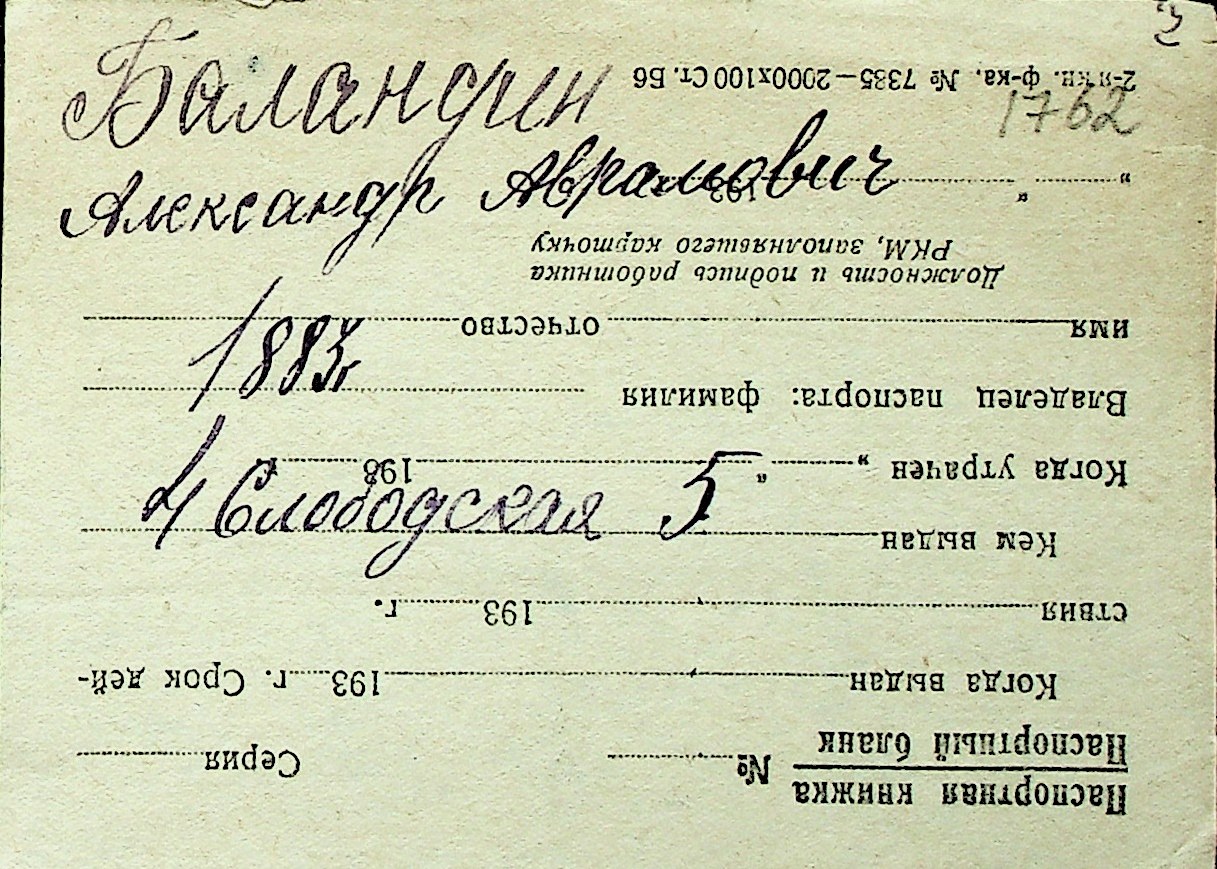 3
1762
Баландин
Александр Аврамович
1883г
4 Слободская 5
Паспортная книжка
Паспортный бланк
№ Серия
Когда выдан 193 г. Срок дей-
ствия 193 г.
Кем выдан
Когда утрачен „ “ 193 г.
Владелец паспорта: фамилия
имя отчество
Должность и подпись работника
РКМ, заполнявшего карточку
„ “ 193
2-я кн. ф-ка. № 7385—2000х100 Ст. Б6